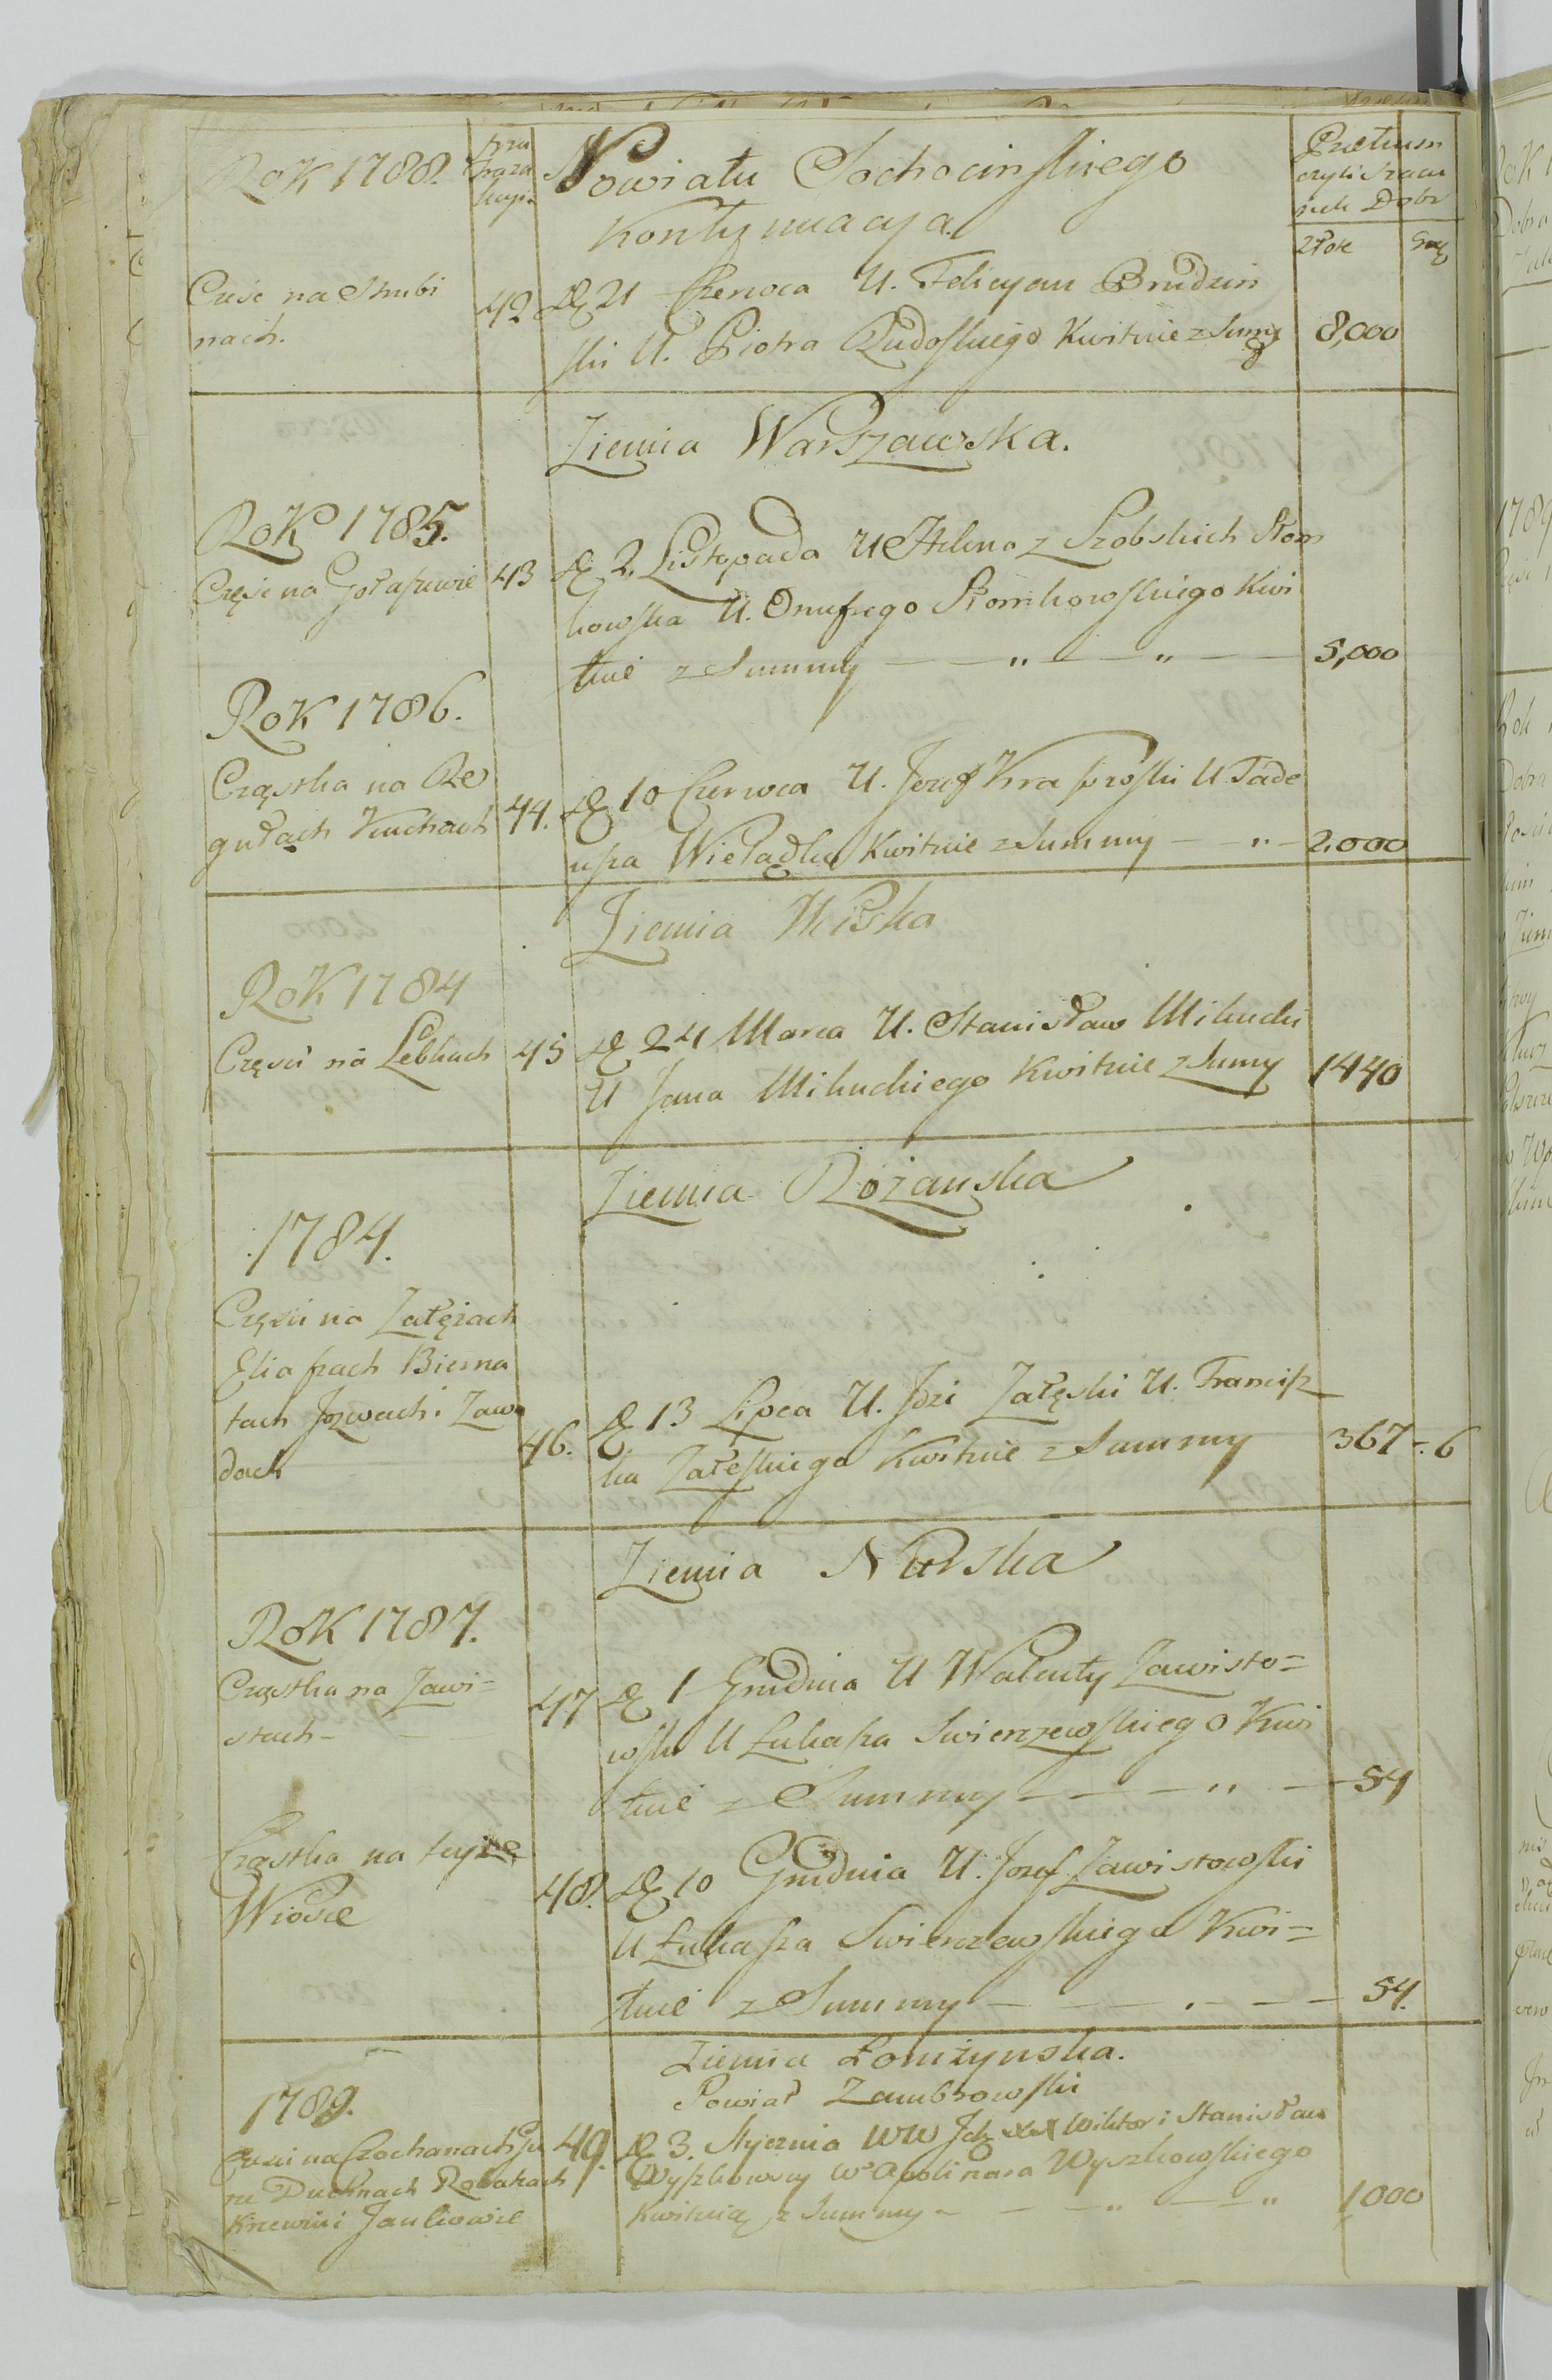 Rok 1788.
Powiatu Sochocinskiego
Kontynuacya.
Prætium
czyli Szacu
nek Dobr
Złote Gro
Czesc na Skrubi
nach.
42 D 21 Czerwca U. Felicyan Brudzin
ski U. Piotra Rudoskiego Kwitnie z Sumy 8,000
Ziemia Warszawska.
Rok 1785.
Część na Gołaszewie 43 D 2. Listopada U Helena z Szobskich Słom
kowska U. Onufrego Słomkowskiego Kwi
tuie z Summy — — " — — " — — 5,000
Rok 1786.
Cząstka na Re
gułach Kuchach
44. D 10 Czerwca U. Jozef Kraszoski U. Tade
usza Wielądka Kwitnie z Summy — — " — 2.000
Ziemia Wiska
Rok 1784
Części na Lebkach 45 D 24 Marca U. Stanisław Mikucki
U Jana Mikuckiego Kwitnie z Sumy 1440
Ziemia Różanska
1784.
Części na Załężach
Eliaszach Bierna
tach Jozwach i Zawa
dach
46. D 13 Lipca U. Jozi Załęski U. Francisz
ka Załeskiego Kwitnie z Summy 367 -. 6
Ziemia Nurska
Rok 1787.
Cząstka na Zawi=
stach -
47 D 1 Grudnia U Walenty Zawisto=
wski U Łukasza Swierzewskiego Kwi
tuie z Summy — — — " — 54
Cząstka na teyże
Wiosce
48. D 10 Grudnia U. Jozef Zawistowski
U Łukasza Swierzewskiego Kwi=
tuie z Summy — — . — — 54.
Ziemia Łomżynska.
Powiat Zambrowski
1789.
Części na Czochanach Gu
ne Duchnach Robakach
Krzewini Jankowie
49. D 3. Stycznia WW Ich XX Wiktor i Stanisław
Wyszkowscy Wo Apolinara Wyszkowskiego
Kwituią z Summy - — — " — — " 1,000